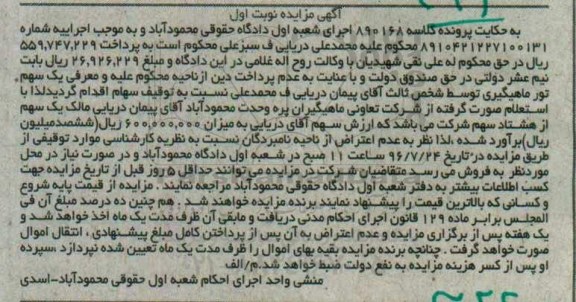 آگهی مزایده نوبت اول
به حکایت پرونده کلاسه ۸۹۰۱۶۸ اجرای شعبه اول دادگاه حقوقی محمودآباد و به موجب اجراییه شماره
۸۹۱۰۴۲۱۲۲۷۱۰۰۱۳۱ محکوم علیه محمدعلی دریایی ف سبزعلی محکوم است به پرداخت ۵۵۹,۷۴۷,۲۲۹
ریال در حق محکوم له علی نقی شهیدیان با وکالت روح اله غلامی در این دادگاه و مبلغ ۲۶,۹۲۶,۲۲۹ ریال بابت
نیم عشر دولتی در حق صندوق دولت و با عنایت به عدم پرداخت دین ازناحیه محکوم علیه و معرفی یک سهم
تور ماهیگیری توسط شخص ثالث آقای پیمان دریایی ف محمدعلی نسبت به توقیف سهام اقدام گردیدلذا با
استعلام صورت گرفته از شرکت تعاونی ماهیگیران پره وحدت محمودآباد آقای پیمان دریایی مالک یک سهم
از هشتاد سهم شرکت می باشد که ارزش سهم آقای دریایی به میزان ۶۰۰,۰۰۰,۰۰۰ ریال(ششصدمیلیون
ریال)برآورد شده ،لذا نظر به عدم اعتراض از ناحیه نامبردگان نسبت به نظریه کارشناسی موارد توقیفی از
طریق مزایده در تاریخ ۹۶/۷/۲۴ ساعت ۱۱ صبح در شعبه اول دادگاه محمودآباد و در صورت نیاز در محل
موردنظر به فروش می رسد متقاضیان شرکت در مزایده می توانند حداقل ۵ روز قبل از تاریخ مزایده جهت
کسب اطلاعات بیشتر به دفتر شعبه اول دادگاه حقوقی محمودآباد مراجعه نمایند . مزایده از قیمت پایه شروع
و کسانی که بالاترین قیمت را پیشنهاد نمایند برنده مزایده خواهند شد . هم چنین ده درصد مبلغ آن فی
المجلس برابر ماده ۱۲۹ قانون اجرای احکام مدنی دریافت و مابقی آن ظرف مدت یک ماه اخذ خواهد شد و
یک هفته پس از برگزاری مزایده و عدم اعتراض به آن پس از پرداختن کامل مبلغ پیشنهادی ، انتقال اموال
صورت خواهد گرفت . چنانچه برنده مزایده بقیه بهای اموال را ظرف مدت یک ماه تعیین شده نپردازد ،سپرده
او پس از کسر هزینه مزایده به نفع دولت ضبط خواهد شد.م/الف
منشی واحد اجرای احکام شعبه اول حقوقی محمودآباد-اسدی